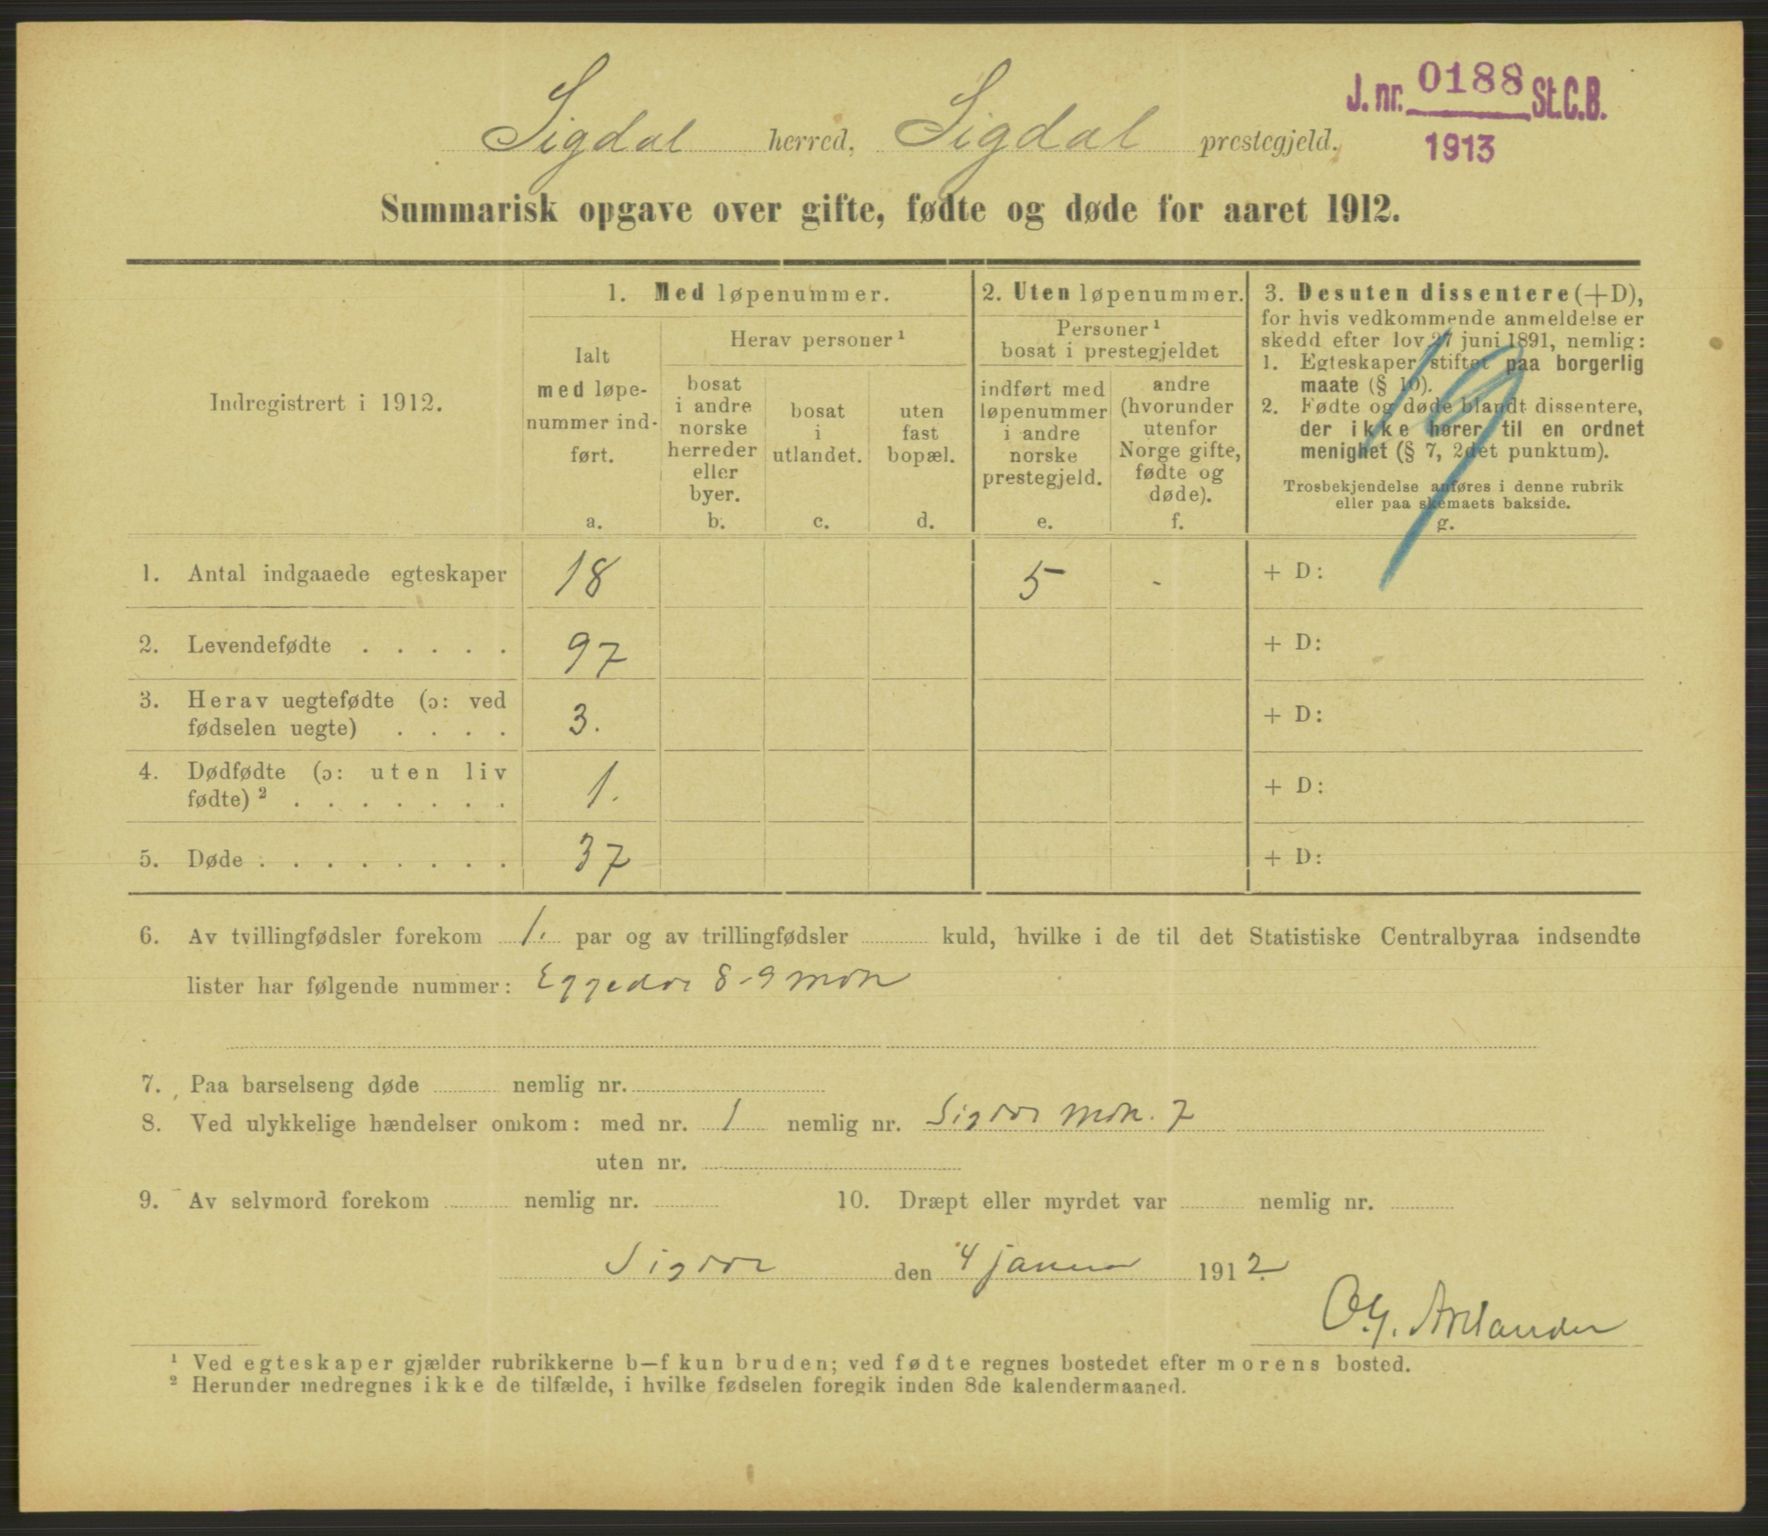 J. nr. 0188 St.C.B.
1913
Sigdal herred, Sigdal prestegjeld.
Summarisk opgave over gifte, fødte og døde for aaret 1912.
Indregistrert i 1912.
1. Med løpenummer.
Ialt
med løpe-
nummer ind-
ført.
a.
Herav personer ¹
bosat
i andre
norske
herreder
eller
byer.
b.
bosat
i
utlandet.
c.
uten
fast
bopæl.
d.
2. Uten løpenummer.
Personer ¹
bosat i prestegjeldet
indført med
løpenummer
i andre
norske
prestegjeld.
e.
andre
(hvorunder
utenfor
Norge gifte,
fødte og
døde).
f.
3. Desuten dissentere (+D),
for hvis vedkommende anmeldelse er
skedd efter lov 27 juni 1891, nemlig:
1. Egteskaper stiftet paa borgerlig
maate (§ 10).
2. Fødte og døde blandt dissentere,
der ikke hører til en ordnet
menighet (§ 7, 2det punktum).
Trosbekjendelse anføres i denne rubrik
eller paa skemaets bakside.
g.
19
1. Antal indgaaede egteskaper 18 5 - + D:
2. Levendefødte . . . . . 97 + D:
3. Herav uegtefødte (ɔ: ved
fødselen uegte) . . . . 3. + D:
4. Dødfødte (ɔ: uten liv
fødte) ² . . . . . . . 1. + D:
5. Døde . . . . . . . . 37 + D:
6. Av tvillingfødsler forekom 1. par og av trillingfødsler kuld, hvilke i de til det Statistiske Centralbyraa indsendte
lister har følgende nummer: Eggedal 8-9 mdk
7. Paa barselseng døde nemlig nr.
8. Ved ulykkelige hændelser omkom: med nr. 1 nemlig nr. Sigdal mdk. 7
uten nr.
9. Av selvmord forekom nemlig nr. 10. Dræpt eller myrdet var nemlig nr.
Sigdal den 4 januar 1912.
¹ Ved egteskaper gjælder rubrikkerne b—f kun bruden; ved fødte regnes bostedet efter morens bosted.
² Herunder medregnes ikke de tilfælde, i hvilke fødselen foregik inden 8de kalendermaaned.